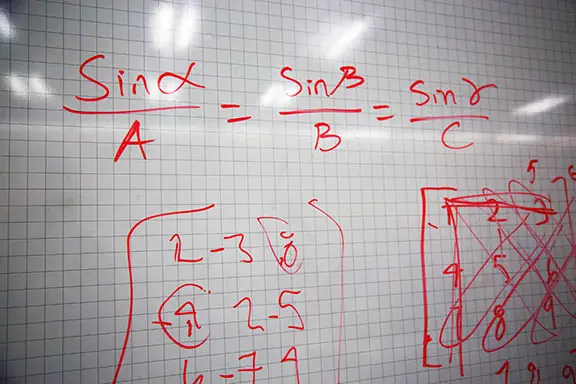 Sin α / A = Sin β / B = Sin γ / C
2 -3 8
-4 2 -5
5
1 2 3
4 5 6
7 8 9